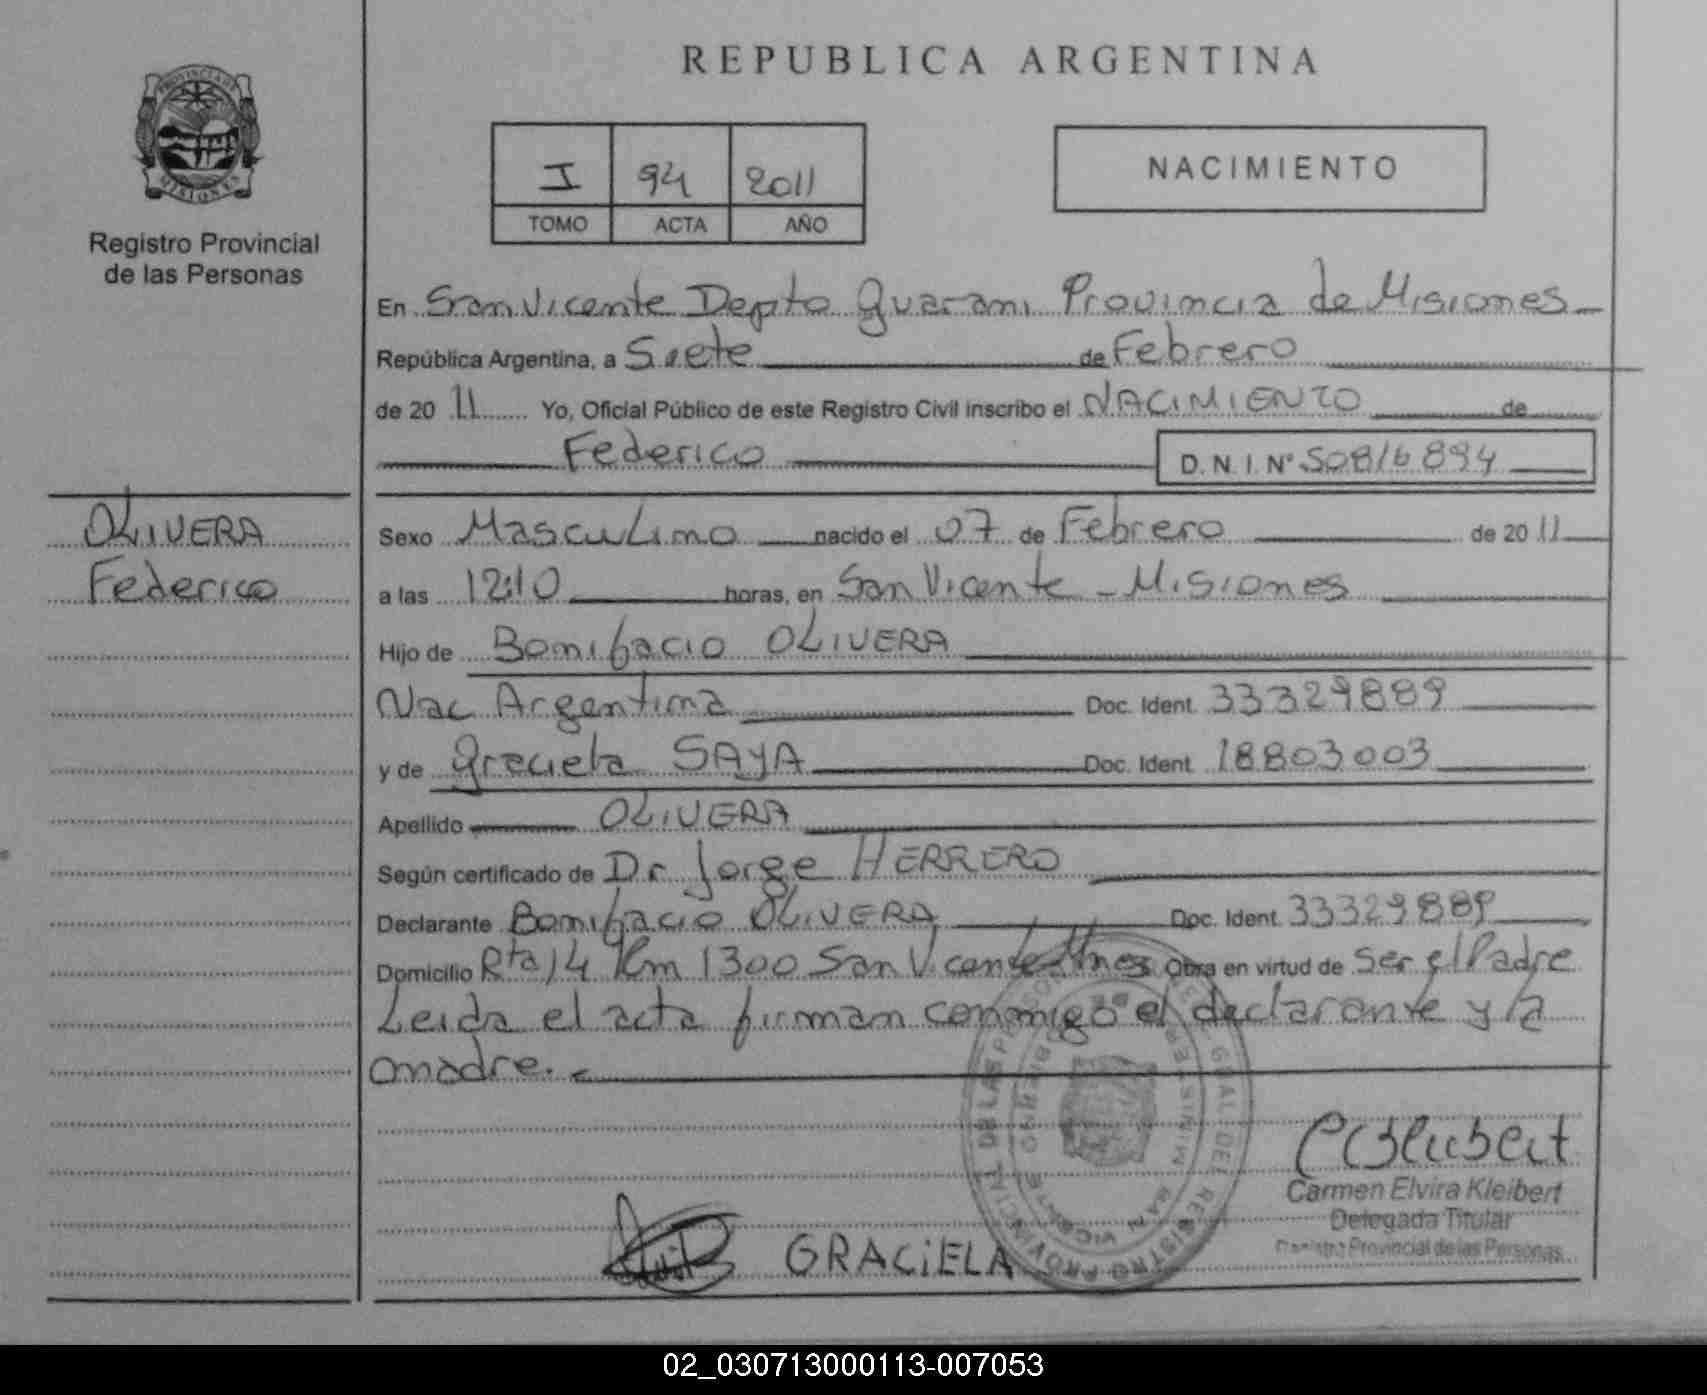 PROVINCIA DE
MISIONES
Registro Provincial
de las Personas
OLIVERA
Federico
REPUBLICA ARGENTINA
I 94 2011
TOMO ACTA AÑO
NACIMIENTO
En San Vicente Depto Guarani Provincia de Misiones
República Argentina, a Siete de Febrero
de 20 11 Yo, Oficial Público de este Registro Civil inscribo el NACIMIENTO de
Federico D.N.I. Nº 50816894
Sexo Masculino nacido el 07 de Febrero de 20 11
a las 12:10 horas, en San Vicente - Misiones
Hijo de Bonifacio OLIVERA
Nac Argentina Doc. Ident. 33329889
y de Graciela SAYA Doc. Ident. 18803003
Apellido OLIVERA
Según certificado de Dr Jorge HERRERO
Declarante Bonifacio OLIVERA Doc. Ident. 33329889
Domicilio Rta 14 Km 1300 San Vicente Mnes Obra en virtud de Ser el Padre
Leida el acta firman conmigo el declarante y la
madre.-
Carmen Elvira Kleibert
Delegada Titular
Registro Provincial de las Personas
GRACIELA
02_030713000113-007053